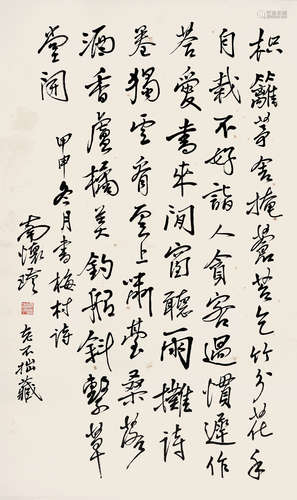 枳籬茅舍掩蒼苔乞竹分花手
自栽不好詣人貪客過慣遲作
答愛書來閒窗聽雨攤詩
卷獨看雲上嘯臺桑落
酒香盧橘美釣船斜繫草
堂開
甲申冬月書梅村詩
南懷瑾
不拙藏